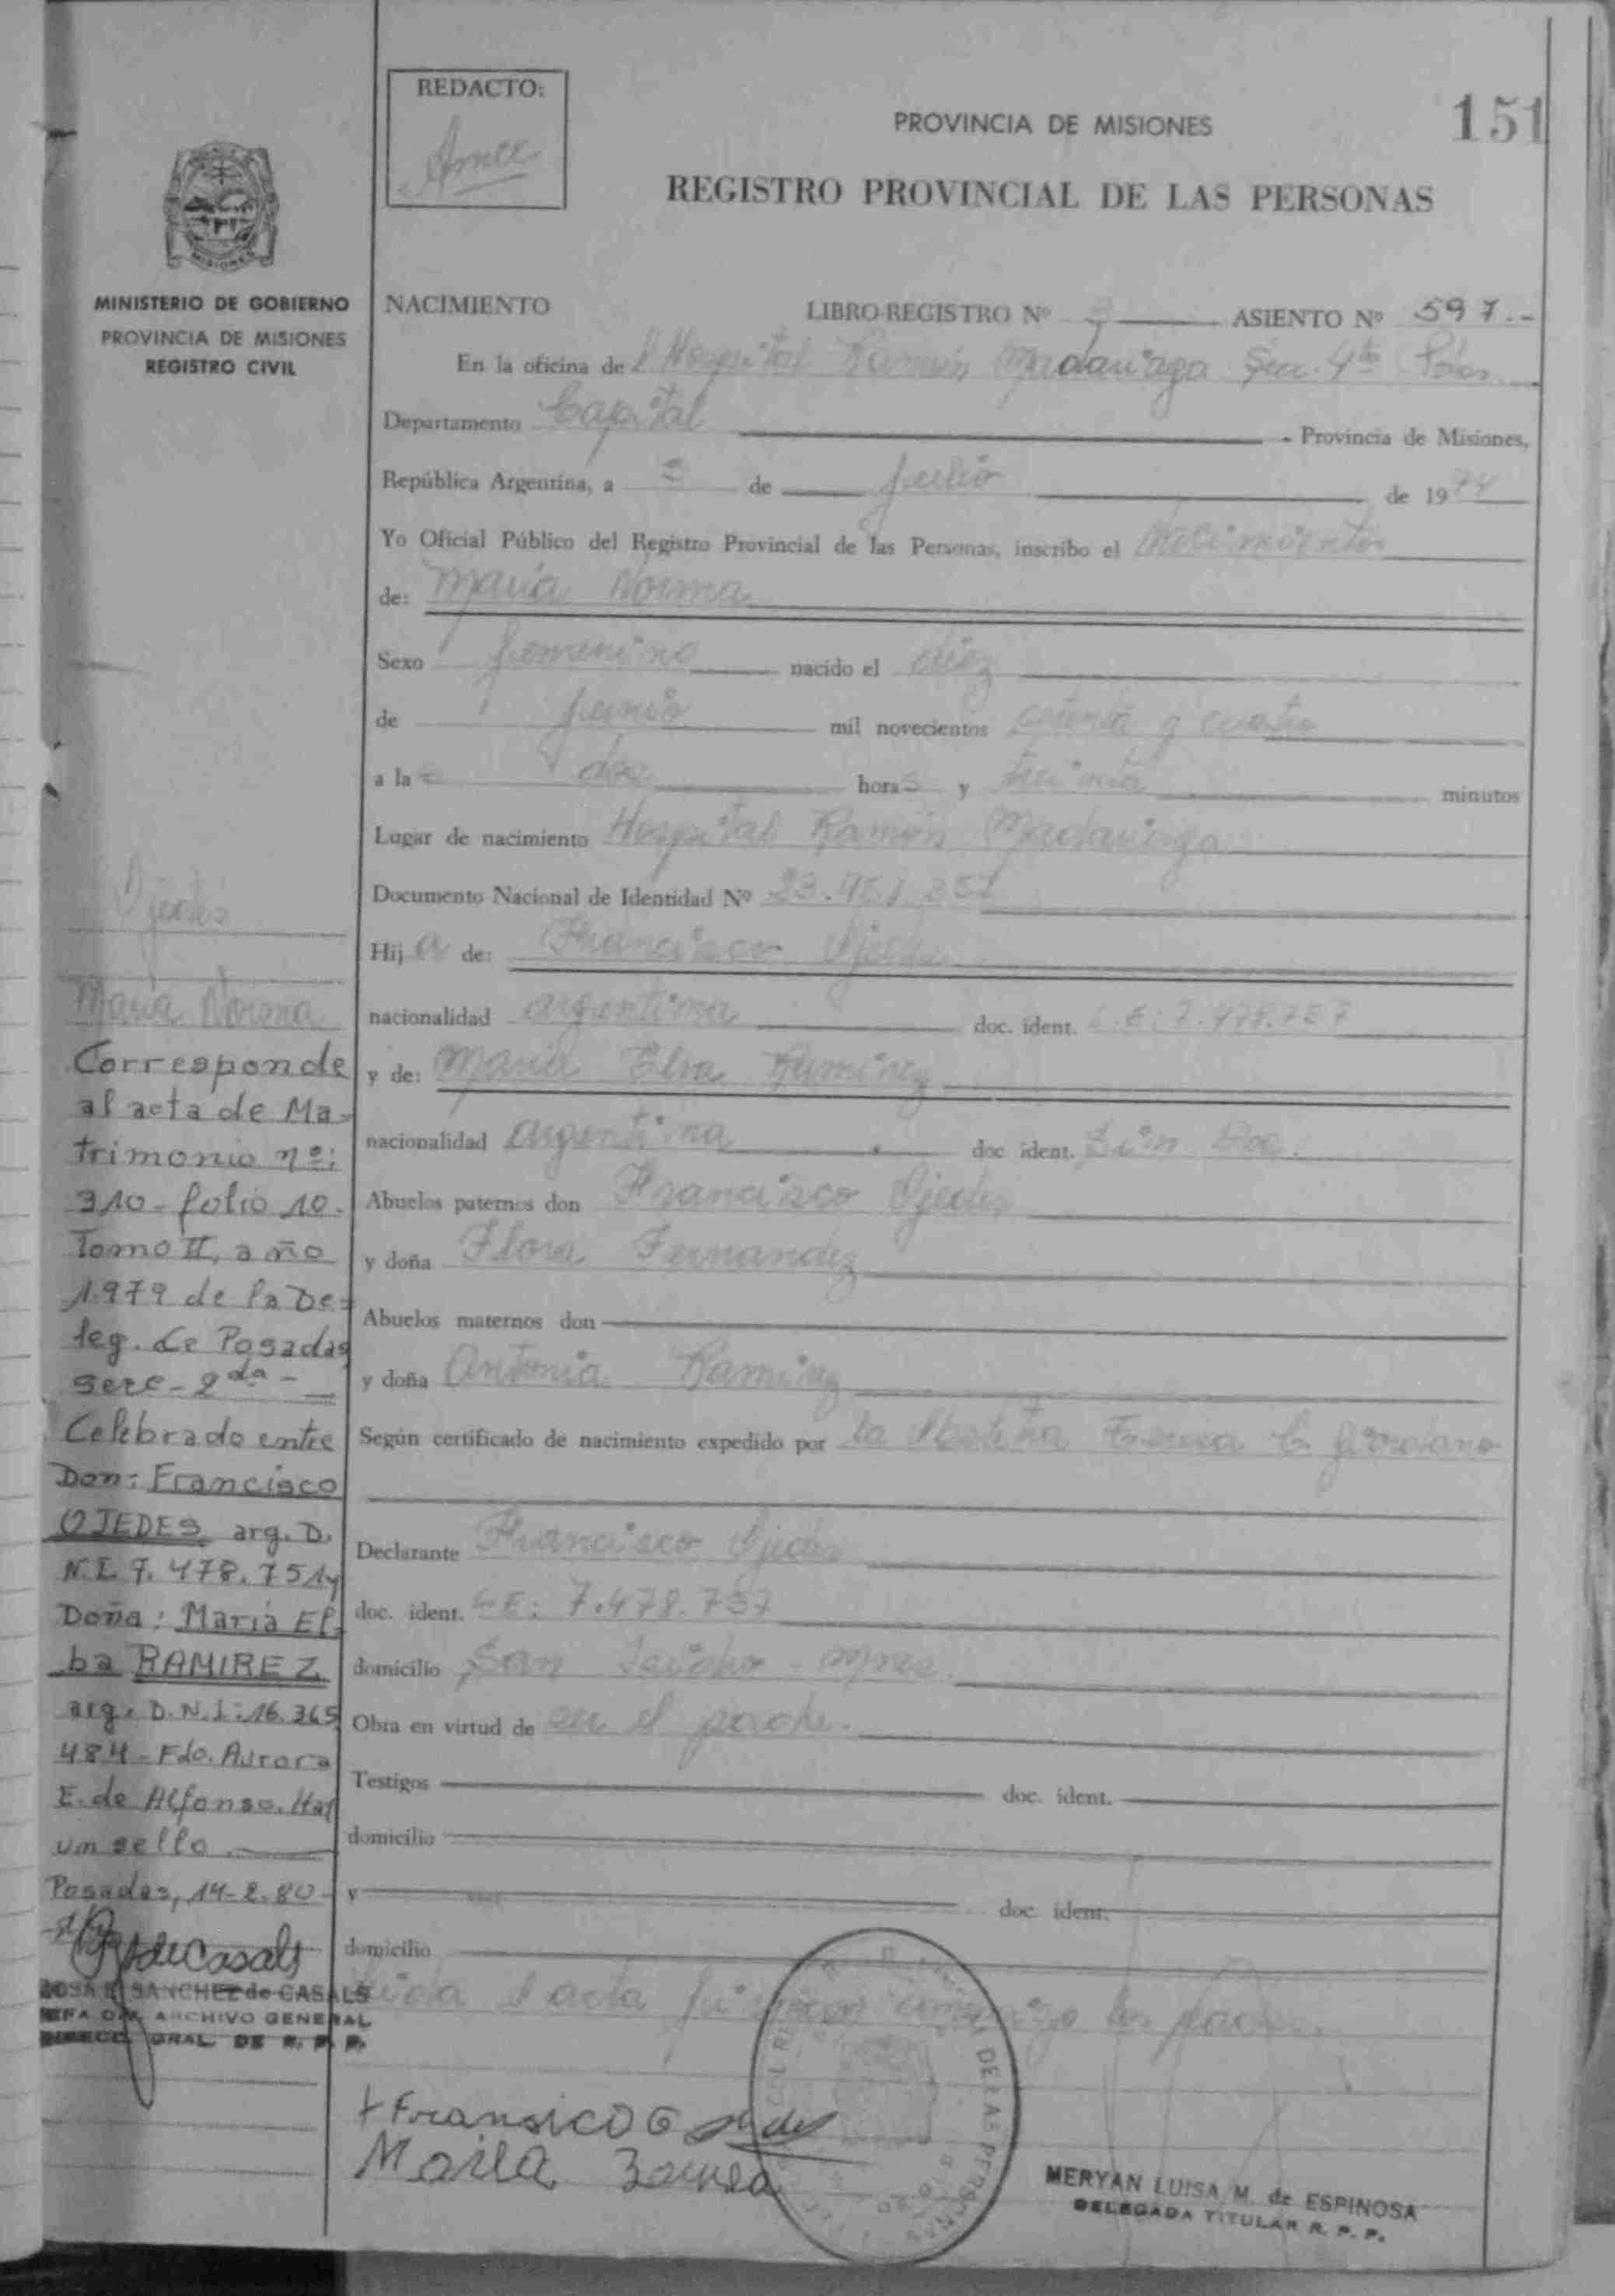 REDACTO:
PROVINCIA DE MISIONES
151
REGISTRO PROVINCIAL DE LAS PERSONAS
MISIONES
MINISTERIO DE GOBIERNO
PROVINCIA DE MISIONES
REGISTRO CIVIL
NACIMIENTO LIBRO-REGISTRO Nº ASIENTO Nº 597.-
En la oficina de l Hospital Ramón Madariaga Secc. 4ta Pdas.
Departamento Capital - Provincia de Misiones,
República Argentina, a 3 de julio de 1974
Yo Oficial Público del Registro Provincial de las Personas, inscribo el nacimiento
de: María Norma
Sexo femenino nacido el diez
de junio mil novecientos setenta y cuatro
a la s horas y treinta minutos
Lugar de nacimiento Hospital Ramón Madariaga
Documento Nacional de Identidad Nº 23.751.357
Hij a de: Francisco Ojedes
nacionalidad argentina doc. ident. L.E: 7.478.757
y de: María Elva Ramirez
nacionalidad argentina doc ident. Sin Doc.
Abuelos paternos don Francisco Ojedes
y doña Flora Fernandez
Abuelos maternos don
y doña Antonia Ramirez
Según certificado de nacimiento expedido por la
Declarante Francisco Ojedes
doc. ident. L E: 7.478.757
domicilio San Isidro
Obra en virtud de ser el padre.
Testigos doc. ident.
domicilio
y doc. ident.
domicilio
Leida el acta firman conmigo los padres.
Ojedes
María Norma
Corresponde
al acta de Ma-
trimonio nº:
310 - folio 10.
Tomo II, año
1979 de la De-
leg. de Posadas
Secc - 2da -
Celebrado entre
Don: Francisco
OJEDES arg. D.
N.I. 7.478.751 y
Doña: María El-
ba RAMIREZ
arg. D.N.I: 16.365
484 - Fdo. Aurora
E. de Alfonso. Hay
un sello
Posadas, 14-2-80
ROSA SANCHEZ de CASALS
JEFA ARCHIVO GENERAL
DIRECC GRAL. DE R. P. P.
+ Fransico
Maria
DE LAS PERSONAS
MERYAN LUISA M. de ESPINOSA
DELEGADA TITULAR R. P. P.